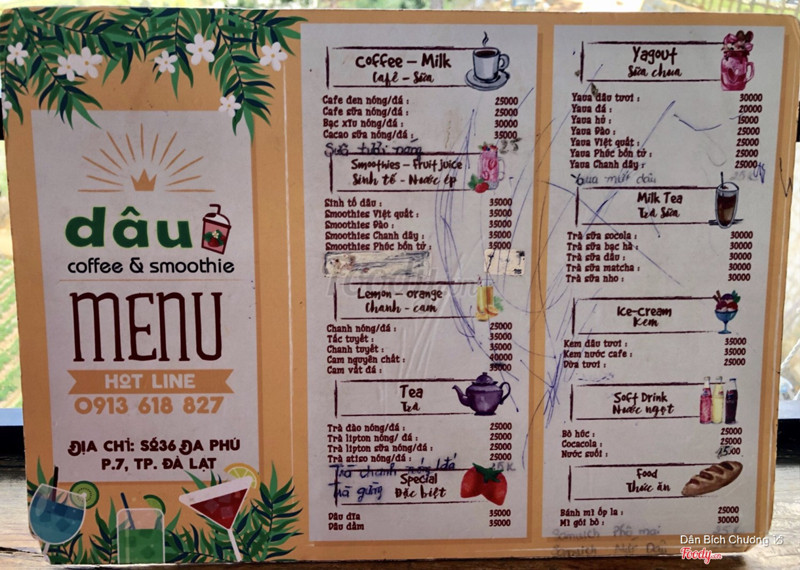 dâu
coffee & smoothie
MENU
HOT LINE
0913 618 827
ĐỊA CHỈ: SỐ36 ĐA PHÚ
P.7, TP. ĐÀ LẠT
Coffee - Milk
Café - Sữa
Cafe đen nóng/đá : 25000
Cafe sữa nóng/đá : 25000
Bạc xỉu nóng/đá : 30000
Cacao sữa nóng/đá : 35000
Sữa tươi nóng 25
Smoothies - Fruit juice
Sinh tố - Nước ép
Sinh tố dâu : 35000
Smoothies Việt quất : 35000
Smoothies Đào : 35000
Smoothies Chanh dây : 35000
Smoothies Phúc bồn tử : 35000
Lemon - orange
Chanh - cam
Chanh nóng/đá : 25000
Tắc tuyết : 35000
Chanh tuyết : 35000
Cam nguyên chất : 40000
Cam vắt đá : 35000
Tea
Trà
Trà đào nóng/đá : 25000
Trà lipton nóng/ đá : 25000
Trà lipton sữa nóng/đá : 25000
Trà atiso nóng/đá : 25000
Trà chanh nóng/đá 25K
Trà gừng
Special
Đặc biệt
Dâu dĩa 35000
Dâu dầm 35000
Yagout
Sữa chua
Yaua dâu tươi : 30000
Yaua đá : 20000
Yaua hủ : 15000
Yaua Đào : 25000
Yaua Việt quất : 25000
Yaua Phúc bồn tử : 25000
Yaua Chanh dây : 25000
Yaua mứt dâu 25K
Milk Tea
Trà Sữa
Trà sữa socola : 30000
Trà sữa bạc hà : 30000
Trà sữa dâu : 30000
Trà sữa matcha : 30000
Trà sữa nho : 30000
Ice-cream
Kem
Kem dâu tươi : 35000
Kem nước cafe : 35000
Dừa tươi : 25000
Soft Drink
Nước ngọt
Bò húc : 25000
Cocacola : 25000
Nước suối :
Food
Thức ăn
Bánh mì ốp la : 25000
Mì gói bò : 30000
Phô mai
Dân Bích Chương
Foody.vn